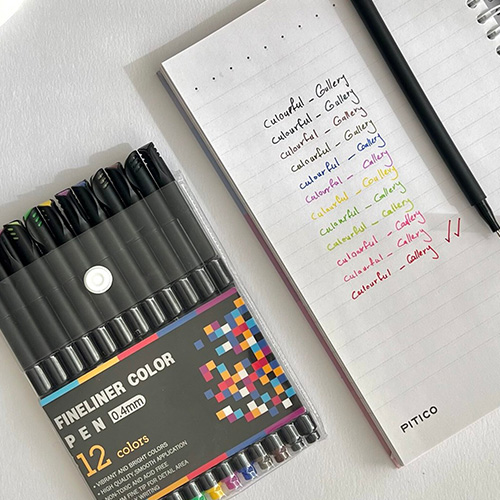 Colourful - Gallery
Colourful - Gallery
Colourful - Gallery
Colourful - Gallery
Colourful - Gallery
Colourful - Gallery
Colourful - Gallery
Colourful - Gallery
Colourful - Gallery
Colourful - Gallery
Colourful - Gallery
Colourful - Gallery
PITICO
FINELINER COLOR
PEN 0.4mm
12 colors
• VIBRANT AND BRIGHT COLORS
• HIGH QUALITY, SMOOTH APPLICATION
• NON-TOXIC AND ACID FREE
FINE TIP FOR DETAIL AREA
WRITING